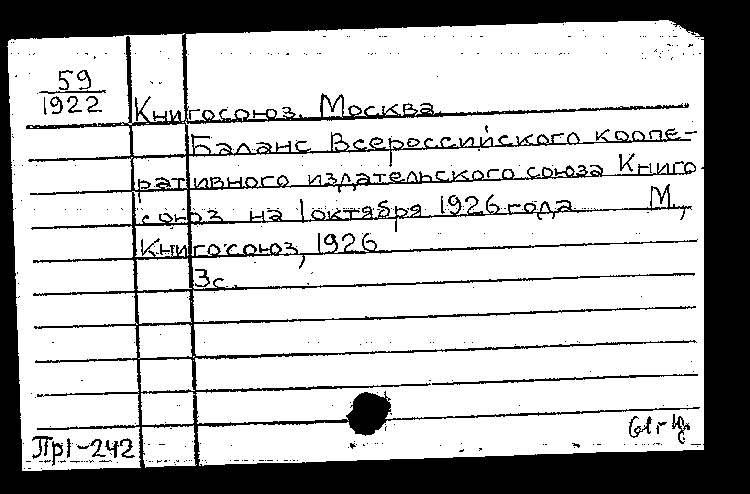 59
1922
Книгосоюз. Москва.
Баланс Всероссийского коопе-
ративного издательского союза Книго-
союз на 1 октября 1926 года М.,
Книгосоюз, 1926
3с.
Пр1-242
61г